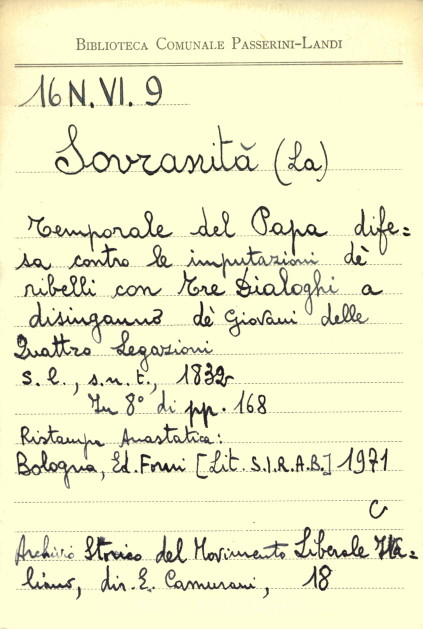 BIBLIOTECA COMUNALE PASSERINI-LANDI
16 N. VI. 9
Sovranità (La)
Temporale del Papa dife=
sa contro le imputazioni dè
ribelli con Tre Dialoghi a
disinganno dè Giovani delle
Quattro Legazioni
S. l., s. n. t., 1832
In 8° di pp. 168
Ristampa Anastatica:
Bologna, Ed. Forni [Lit. S.I.R.A.B.] 1971
C
Archivio Storico del Movimento Liberale Ita=
liano, dir. E. Camurani, 18